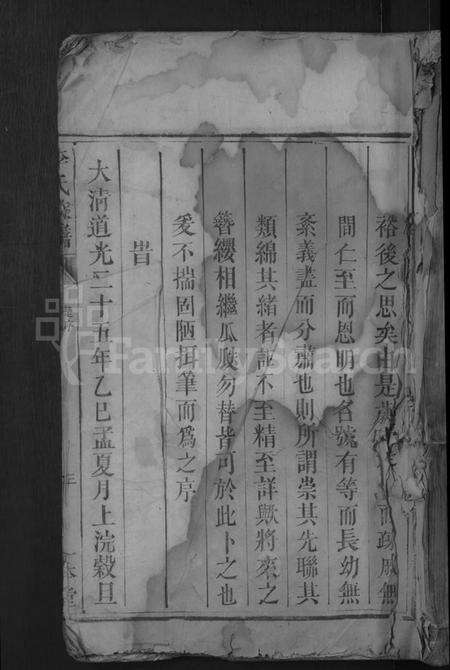 裕後之思矣由是
而踈戚無
間仁至而恩明也名號有等而長幼無
紊義盡而分肅也則所謂崇其先聯其
類綿其緒者詎不至精至詳歟將來之
簪纓相繼瓜瓞勿替皆可於此卜之也
爰不揣固陋搦筆而為之序
旹
大清道光二十五年乙巳孟夏月上浣穀旦
李氏族譜
堂
FamilySearch